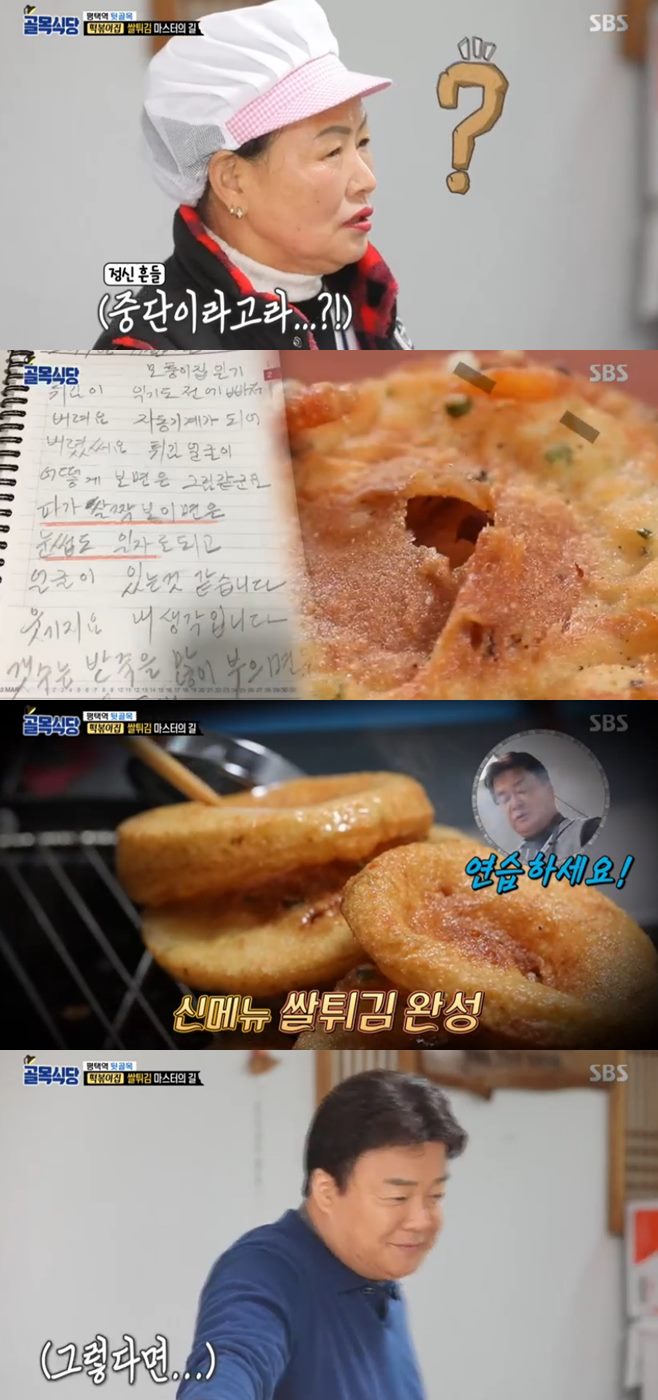 골목식당
평택역 뒷골목
떡볶이집 쌀튀김 마스터의 길
SBS
정신 흔들
(중단이라고라...?!)
골목식당
SBS
모퉁이집 일기
튀김이 익기도 전에 빠져
버려요 자동기계가 되어
버렸써요 튀김 얼굴이
어떻게 보면은 그림같군요
파가 살짝 보이면은
눈썹도 인자로되고
얼굴이 있는것 같습니다
웃기지요 내 생각입니다
갯수는 반죽을 많이 부으면
골목식당
평택역 뒷골목
떡볶이집 쌀튀김 마스터의 길
SBS
연습하세요!
신메뉴 쌀튀김 완성
골목식당
평택역 뒷골목
떡볶이집 쌀튀김 마스터의 길
SBS
(그렇다면...)